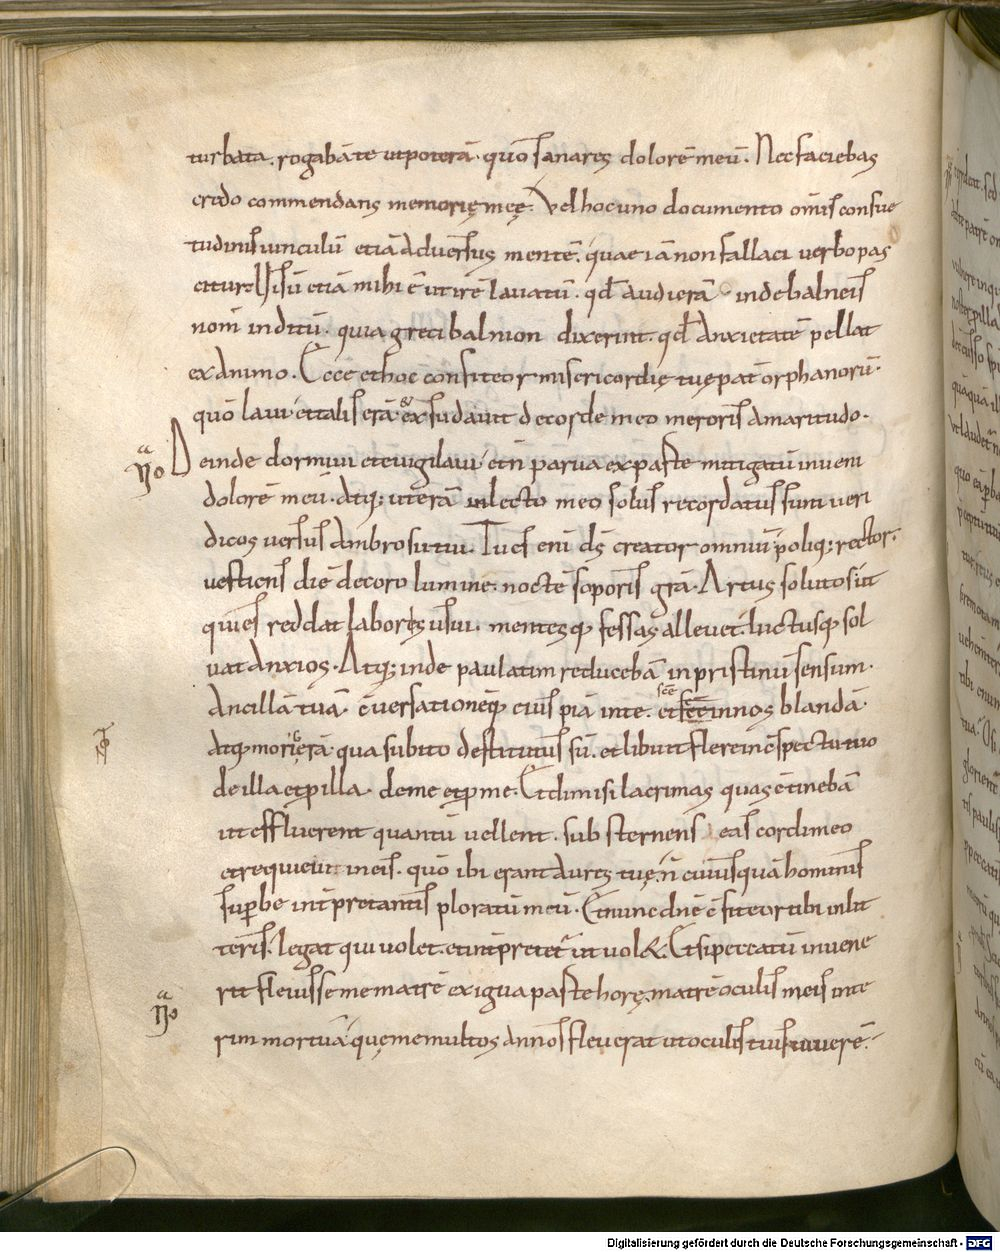 turbata. rogabā te ut poterā. quō sanares dolorē meū. Nec faciebas
credo commendans memorię meę. Vel hoc uno documento om̄is consue
tudinis uinculū etiā aduersus mentē. quae iā non fallaci uerbo pas
citur. Uisū etiā mihi ē ut irē lauatū. qd̄ audierā inde balneis
nom̄ inditū. quia greci balnion dixerint. qd̄ anxietatē pellat
ex animo. Ecce et hoc confiteor misericordię tuę pat̄ orphanorū.
quō laui et talis erā. ex sudauit de corde meo meroris amaritudo.
Deinde dormiui et euigilaui et n̄ parua ex parte mitigatū inueni
dolorē meū. atq; ut erā in lecto meo solus recordatus sum ueri
dicos uersus ambrosii tui. Tu es eni ds̄ creator omniū poliq; rector.
uestiens diē decoro lumine. noctē soporis gr̄a. Artus solutos ut
quies reddat laboris usui. mentesq; fessas alleuet. luctusq; sol
uat anxios. Atq; inde paulatim reducebā in pristinū sensum.
Ancillā tuā. c̄uersationēq; eius piā in te. et sc̄ē in nos blandā.
atq; morigerā. qua subito destitutus sū. et libuit flere in c̄spectu tuo
de illa et p illa. de me et p me. Et dimisi lacrimas quas c̄tinebā
ut effluerent quantū uellent. substernens eas cordi meo
et requieuit in eis. quō ibi erant aures tuę n̄ cuiusquā hominis
supbe int̄pretantis ploratū meū. Et nunc dn̄e c̄fiteor tibi in lit
teris. legat qui uolet. et int̄pretet̄ ut uol&. Et si peccatū inuene
rit fleuisse me matrē exigua parte horę. matrē oculis meis inte
rim mortuā quę me multos annos fleuerat ut oculis tuis uiuerē.
Digitalisierung gefördert durch die Deutsche Forschungsgemeinschaft - DFG